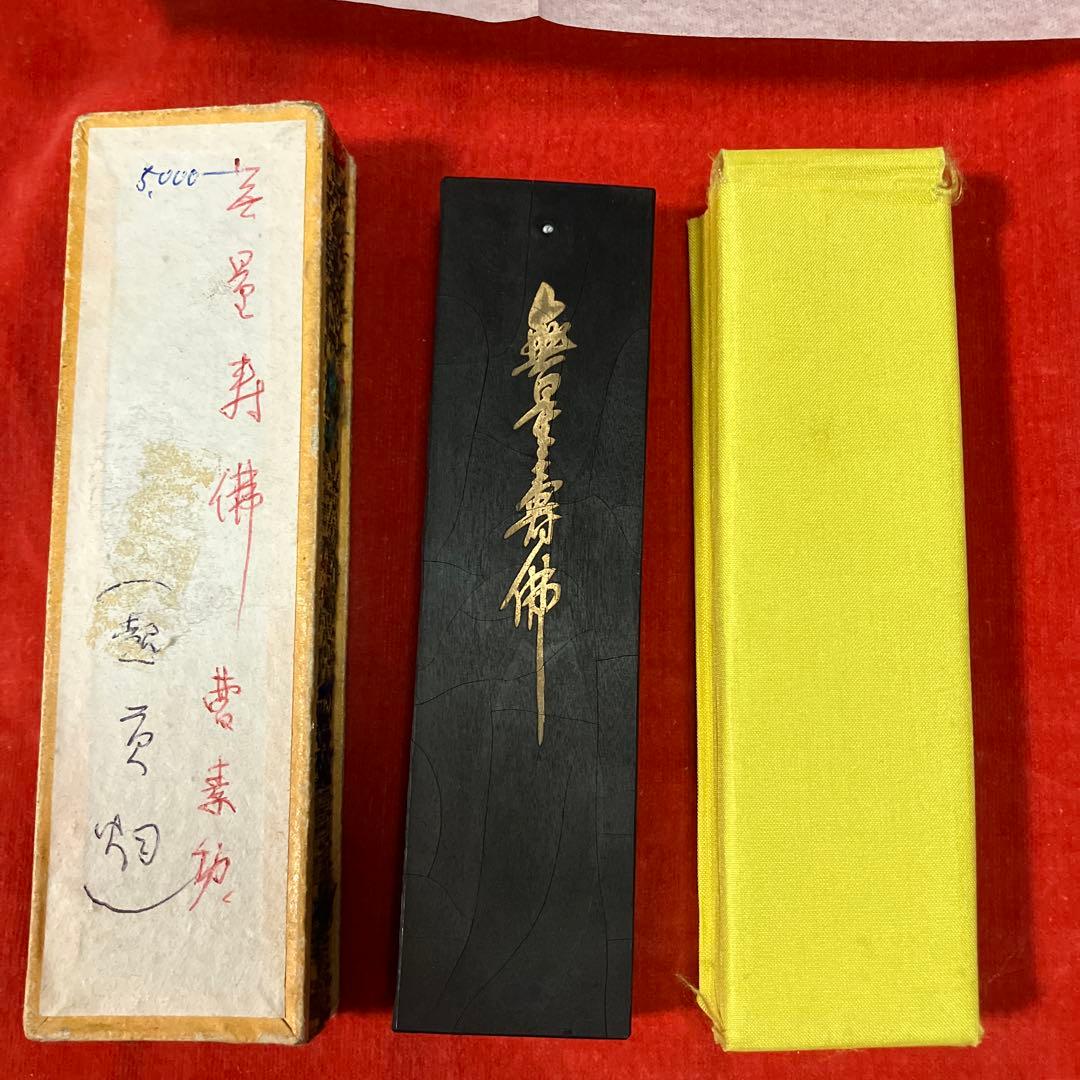 5,000
无量寿佛 曹素功
(超贡烟)
無量壽佛